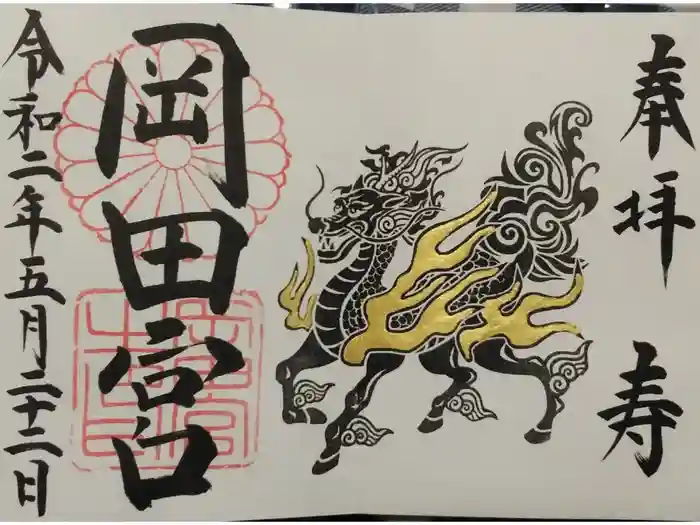 奉拝
寿
岡田宮
令和二年五月二十二日